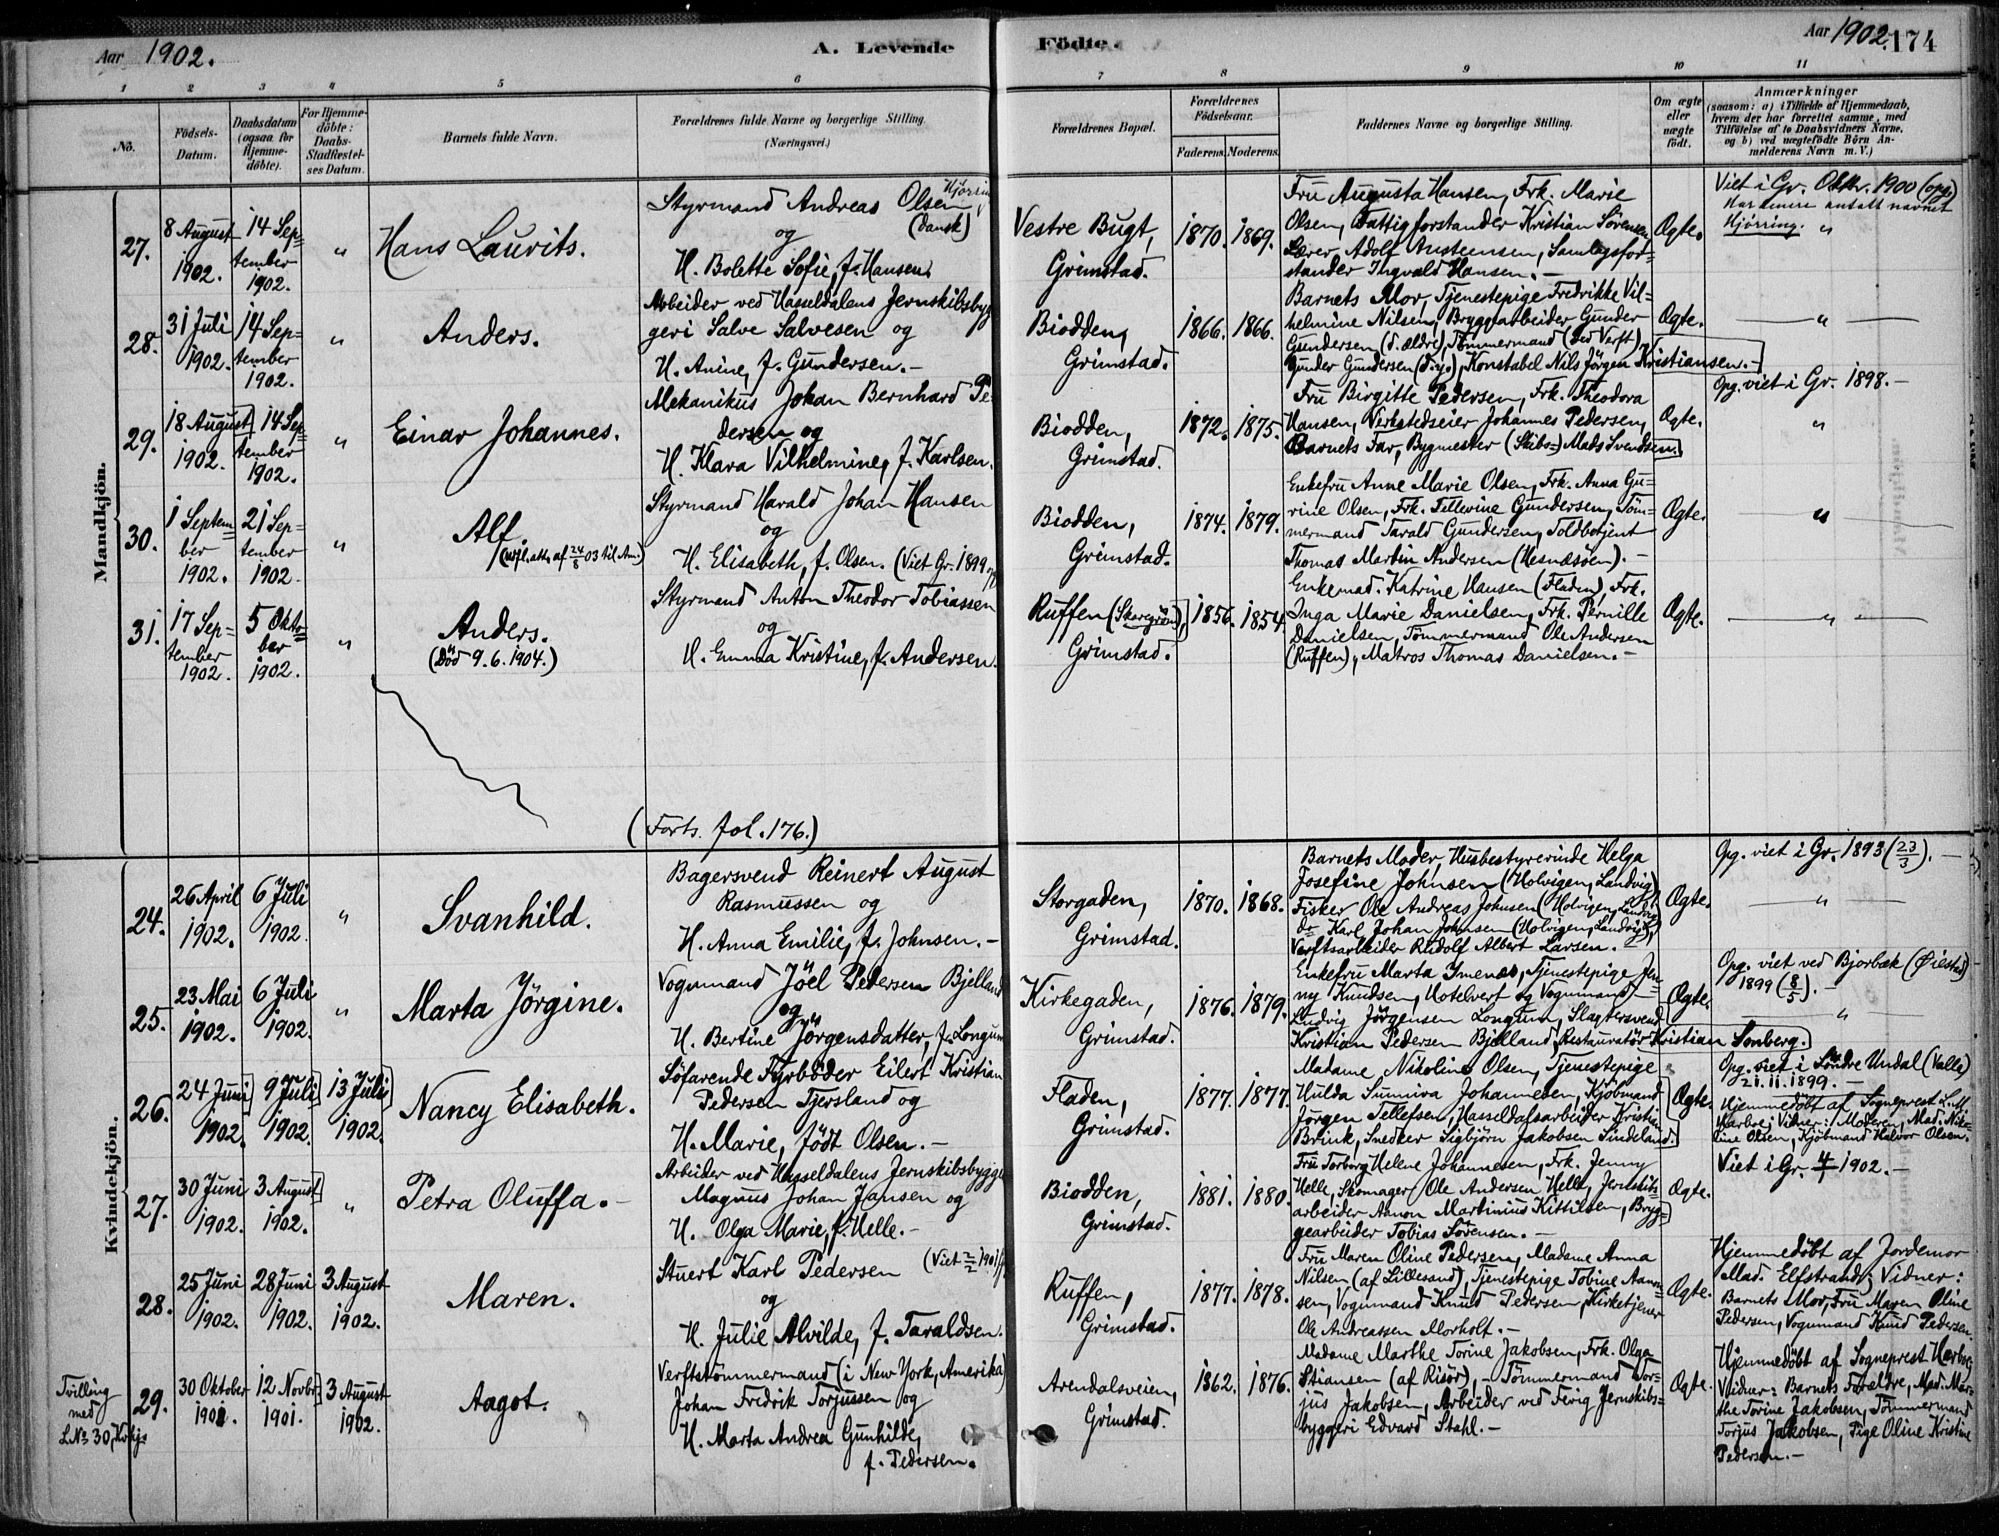 Aar 1902.
A. Levende
Födte.
Aar 1902.
174
1 2 3 4 5 6 7 8 9 10 11
No.
Födsels-Datum.
Daabsdatum (ogsaa for Hjemme-döbte).
For Hjemme-döbte: Daabs-Stadfæstel-ses Datum.
Barnets fulde Navn.
Forældrenes fulde Navne og borgerlige Stilling.
(Næringsvei.)
Forældrenes Bopæl.
Forældrenes Födselsaar.
Faderens.
Moderens.
Faddernes Navne og borgerlige Stilling.
Om ægte eller uægte födt.
Anmærkninger
(saasom: a) i Tilfælde af Hjemmedaab,
hvem der har forrettet samme, med
Tilföielse af to Daabsvidners Navne,
og b) ved uægtefödte Börn An-
melderens Navn m. V.)
Mandkjön.
27.
8 August
1902.
14 Sep=
tember
1902.
"
Hans Laurits.
Styrmand Andreas Olsen
(Dansk)
og
H. Bolette Sofie, f. Hansen.
Vestre Bugt,
Grimstad.
1870.
1869.
Fru Augusta Hansen, Frk. Marie
Olsen, Fattigforstander Kristian Sörensen,
Lærer Adolf Austeensen, Samlagsfor=
stander Ingvald Hansen. —
Ægte.
Viet i Gr. Oktbr. 1900 (opg.)
Har senere antatt navnet
Hjørring. "
28.
31 Juli
1902.
14 Sep=
tember
1902.
"
Anders.
Arbeider ved Hasseldalens Jernskibsbyg
geri Salve Salvesen og
H. Anine, f. Gundersen. —
Biodden,
Grimstad.
1866.
1866.
Barnets Mor, Tjenestepige Fredrikke Vil=
helmine Nilsen, Bryggearbeider Gunder
Gundersen (d. ældre), Tömmermand (ved Verft)
Gunder Gundersen (d. y.), Konstabel Nils Jörgen Kristiansen. —
Ægte.
— " —
29.
18 August
1902.
14 Sep=
tember
1902.
"
Einar Johannes.
Mekanikus Johan Bernhard Pe=
dersen og
H. Klara Vilhelmine, f. Karlsen.
Biodden,
Grimstad.
1872.
1875.
Fru Birgitte Pedersen, Frk. Theodora
Hansen, Verkstedseier Johannes Pedersen,
Barnets Far, Bygmester (Skibs=) Mads Svendsen.
Ægte.
Opg. viet i Gr. 1898. —
"
30.
1 Septem=
ber
1902.
21 Sep=
tember
1902.
"
Alf
Styrmand Harald Johan Hansen
og
H. Elisabeth, f. Olsen. (Viet Gr. 1899
Biodden,
Grimstad.
1874.
1879.
Enkefru Anne Marie Olsen, Frk. Anna Gu=
rine Olsen, Frk. Tellevine Gundersen, Töm=
mermand Tarald Gundersen, Toldbetjent
Thomas Martin Andersen (Hesnæsöen). —
Ægte.
— " —
31.
17 Sep=
tember
1902.
5 Okto=
ber
1902.
"
Anders.
(Död 9.6.1904.)
Styrmand Anton Theodor Tobiassen
og
H. Emma Kristine, f. Andersen.
Ruffen (Skaregrön),
Grimstad.
1856.
1854.
Enkemad. Katrine Hansen (Fladen), Frk.
Inga Marie Danielsen, Frk. Pernille
Danielsen, Tömmermand Ole Andersen
(Ruffen), Matros Thomas Danielsen. —
Ægte.
— " —
(Forts. fol. 176.)
Kvindekjön.
24.
26 April
1902.
6 Juli
1902.
"
Svanhild.
Bagersvend Reinert August
Rasmussen og
H. Anna Emilie, f. Johnsen. —
Storgaden,
Grimstad.
1870.
1868.
Barnets Moder, Husbestyrerinde Helga
Josefine Johnsen (Holvigen, Landvig)
Fisker Ole Andreas Johnsen (Holvigen, Landvig)
do Karl Johan Johnsen (Holvigen, Landvig),
Verftsarbeider Rudolf Albert Larsen. —
Ægte.
Opg. viet i Gr. 1893 (23/3). —
— " —
25.
23 Mai
1902.
6 Juli
1902.
"
Marta Jörgine.
Vognmand Jöel Pedersen Bjelland
og
H. Bertine Jörgensdatter, f. Longum
Kirkegaden,
Grimstad.
1876.
1879.
Enkefru Marta Ymenæs, Tjenestepige Jen=
ny Knudsen, Hotelvert og Vognmand
Ludvig Jörgensen Longum, Slagtersvend
Kristian Pedersen Bjelland, Restauratör Kristian Sonberg.
Ægte.
Opg. viet ved Bjorbæk (Öiestad)
1899 (8/5). —
"
26.
24 Juni
1902.
9 Juli
1902.
13 Juli
1902.
Nancy Elisabeth.
Söfarende Fyrböder Eilert Kristian
Pedersen Tjersland og
H. Marie, födt Olsen. —
Fladen,
Grimstad.
1877.
1877.
Madame Nikoline Olsen, Tjenestepige
Hulda Sunniva Johannesen, Kjöbmand
Jörgen Tellefsen, Hasseldalsarbeider Kristian
Brink, Snedker Sigbjörn Jakobsen Sindeland.
Ægte.
Opg. viet i Söndre Undal (Valle)
21.11.1899. —
Hjemmedöbt af Sogneprest
Harboe; Vidner: Moderen, Mad. Niko=
line Olsen, Kjöbmand Halvor Olsen.
27.
30 Juni
1902.
3 August
1902.
"
Petra Oluffa. —
Arbeider ved Hasseldalens Jernskibsbygge
Magnus Johan Jansen og
H. Olga Marie, f. Helle. —
Biodden,
Grimstad.
1881.
1880.
Fru Torborg Helene Johannesen, Frk. Jenny
Helle, Skomager Ole Andersen Helle, Jernskibs=
arbeider Aanon Martinius Kittilsen, Bryg=
gearbeider Tobias Sörensen. —
Ægte.
Viet i Gr. 4/1 1902. —
28.
25 Juni
1902.
28 Juni
1902.
3 August
1902.
Maren.
Stuert Karl Pedersen (Viet 2/2 1901
og
H. Julie Alvilde, f. Taraldsen.
Ruffen,
Grimstad.
1877.
1878.
Fru Maren Oline Pedersen, Madame Anna
Nilsen (af Lillesand), Tjenestepige Tobine Aanon=
sen, Vognmand Knud Pedersen, Kirketjener
Ole Andreassen Morholt. —
Ægte.
Hjemmedöbt af Jordemor
Mad. Elfstrand; Vidner:
Barnets Mor, Fru Maren Oline
Pedersen, Vognmand Knud Pedersen.
Tvilling
med
LNo 30, Kvkjs
29.
30 Oktober
1901.
12 Novbr.
1901.
3 August
1902.
Aagot.
Verftstömmermand (i New York, Amerika)
Johan Fredrik Torjussen og
H. Marta Andrea Gunhilde,
f. Pedersen.
Arendalsveien,
Grimstad.
1862.
1876.
Madame Marthe Torine Jakobsen, Frk. Olga
Stiansen (af Risör), Tömmermand Tor=
jus Jakobsen, Arbeider ved Fevig Jernskibs=
byggeri Edvard Stahl. —
Ægte.
Hjemmedöbt af Sogneprest Harboe
Vidner: Barnets Forældre, Mad. Mar=
the Torine Jakobsen, Tömmermand
Torjus Jakobsen, Pige Oline Kristine
Pedersen. —